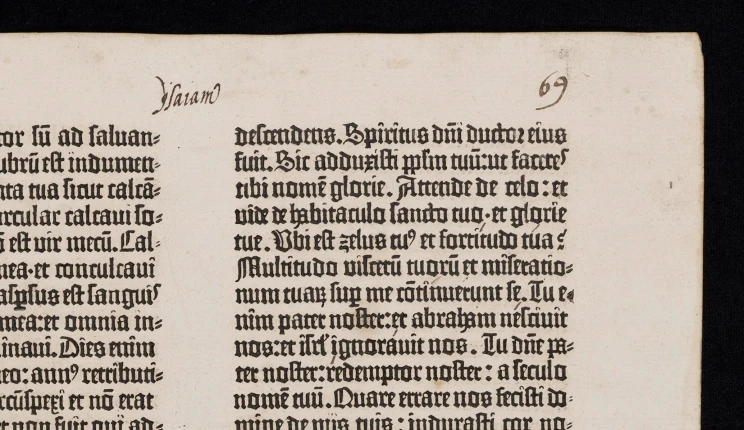 ysaiam
69
tor sū ad saluan-
ubrū est indumen-
nta tua sicut calcā-
rcular calcaui so-
est vir mecū. Cal-
mea·et conculcaui
aspsus est sanguis
mea:et omnia in-
inaui. Dies enim
eo: annꝰ retributi-
rcūspexi et nō erat
et non fuit qui ad-
descendens. Spiritus dn̄i ductor eius
fuit. Sic adduxisti ppl̄m tuū:ut faceres
tibi nomē glorie. Attende de celo: et
vide de habitaculo sancto tuo·et glorie
tue. Vbi est zelus tuꝰ et fortitudo tua?
Multitudo viscerū tuorū et miseratio-
num tuaꝝ suꝑ me cōtinuerunt se. Tu e-
nim pater noster:et abraham nesciuit
nos:et isrl̄ ignorauit nos. Tu dn̄e pa-
ter noster:redemptor noster: a seculo
nomē tuū. Quare errare nos fecisti do-
mine de vijs tuis: indurasti cor no-